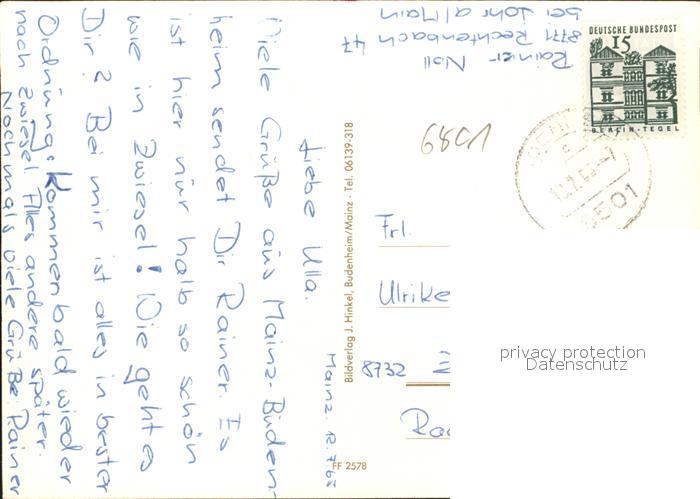 Mainz. 12.7.68
Liebe Ulla.
Viele Grüße aus Mainz-Buden-
heim sendet Dir Rainer. Es
ist hier nur halb so schön
wie in Zwiesel! Wie geht es
Dir? Bei mir ist alles in bester
Ordnung. Kommen bald wieder
nach Zwiesel. Alles andere später.
Nochmals viele Grüße Rainer
Bildverlag J. Hinkel, Budenheim/Mainz - Tel. 06139-318
FF 2578
Rainer Noll
8771 Rechtenbach 47
bei Lohr a/Main
6801
DEUTSCHE BUNDESPOST
15
BERLIN-TEGEL
6501
Frl.
Ulrike
8732
privacy protection
Datenschutz